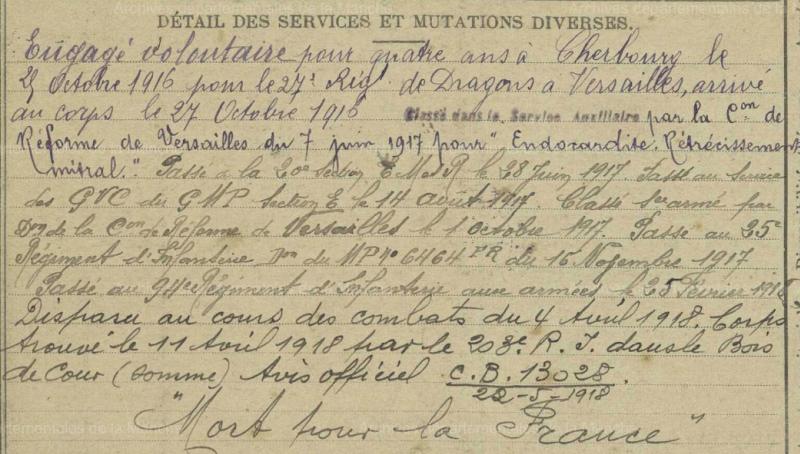 Archives départementales de la Manche
DÉTAIL DES SERVICES ET MUTATIONS DIVERSES.
Engagé volontaire pour quatre ans à Cherbourg le
25 Octobre 1916 pour le 27e Régt de Dragons à Versailles, arrivé
au corps le 27 Octobre 1916 Classé dans le Service Auxiliaire par la Con de
Réforme de Versailles du 7 juin 1917 pour "Endocardite. Rétrécissement
mitral." Passé à la 20e Section E.M.R le 28 Juin 1917. Passé au service
des GVC du GMP Section E le 14 août 1917. Classé Sce armé par
Don de la Con de Réforme de Versailles le 1 octobre 1917. Passé au 25e
Régiment d'Infanterie Don du MP No 6464 PR du 16 Novembre 1917
Passé au 94e Régiment d'Infanterie aux armées le 25 Février 1918
Disparu au cours des combats du 4 Avril 1918. Corps
trouvé le 11 Avril 1918 par le 203e R.I. dans le Bois
de Cour (Somme) Avis officiel C.B.13028.
22-5-1918
"Mort pour la France"